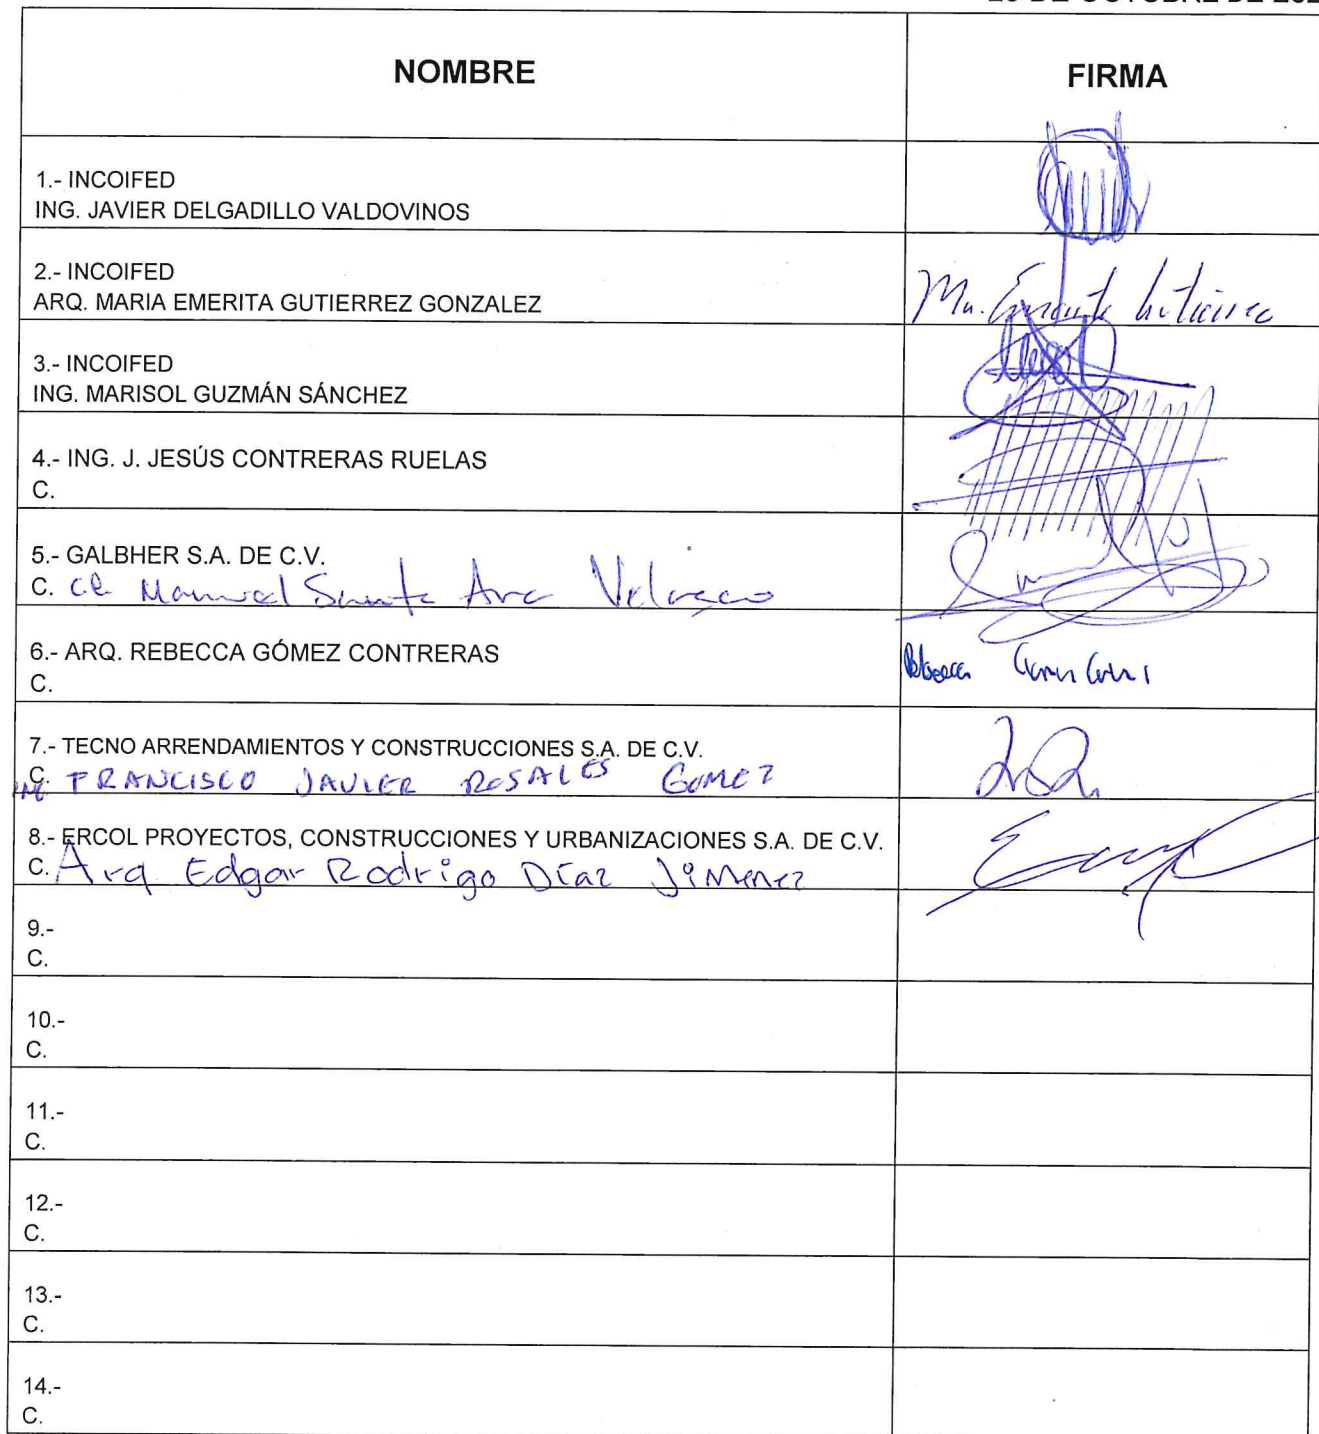 DE OCTUBRE DE
NOMBRE
FIRMA
1.- INCOIFED
ING. JAVIER DELGADILLO VALDOVINOS
2.- INCOIFED
ARQ. MARIA EMERITA GUTIERREZ GONZALEZ
Ma. Emerita Gutiérrez
3.- INCOIFED
ING. MARISOL GUZMÁN SÁNCHEZ
4.- ING. J. JESÚS CONTRERAS RUELAS
C.
5.- GALBHER S.A. DE C.V.
C. Manuel Santa Ana Velasco
6.- ARQ. REBECCA GÓMEZ CONTRERAS
Rebecca
C.
7.- TECNO ARRENDAMIENTOS Y CONSTRUCCIONES S.A. DE C.V.
C.
ING FRANCISCO JAVIER ROSALES GOMEZ
8.- ERCOL PROYECTOS, CONSTRUCCIONES Y URBANIZACIONES S.A. DE C.V.
C. Arq Edgar Rodrigo Díaz Jimenez
9.-
C.
10.-
C.
11.-
C.
12.-
C.
13.-
C.
14.-
C.